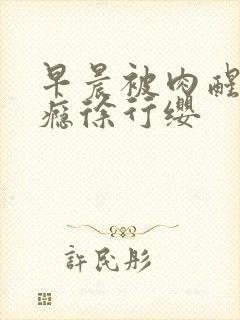 早晨被肉醒
瘾徐行缨
許民彤